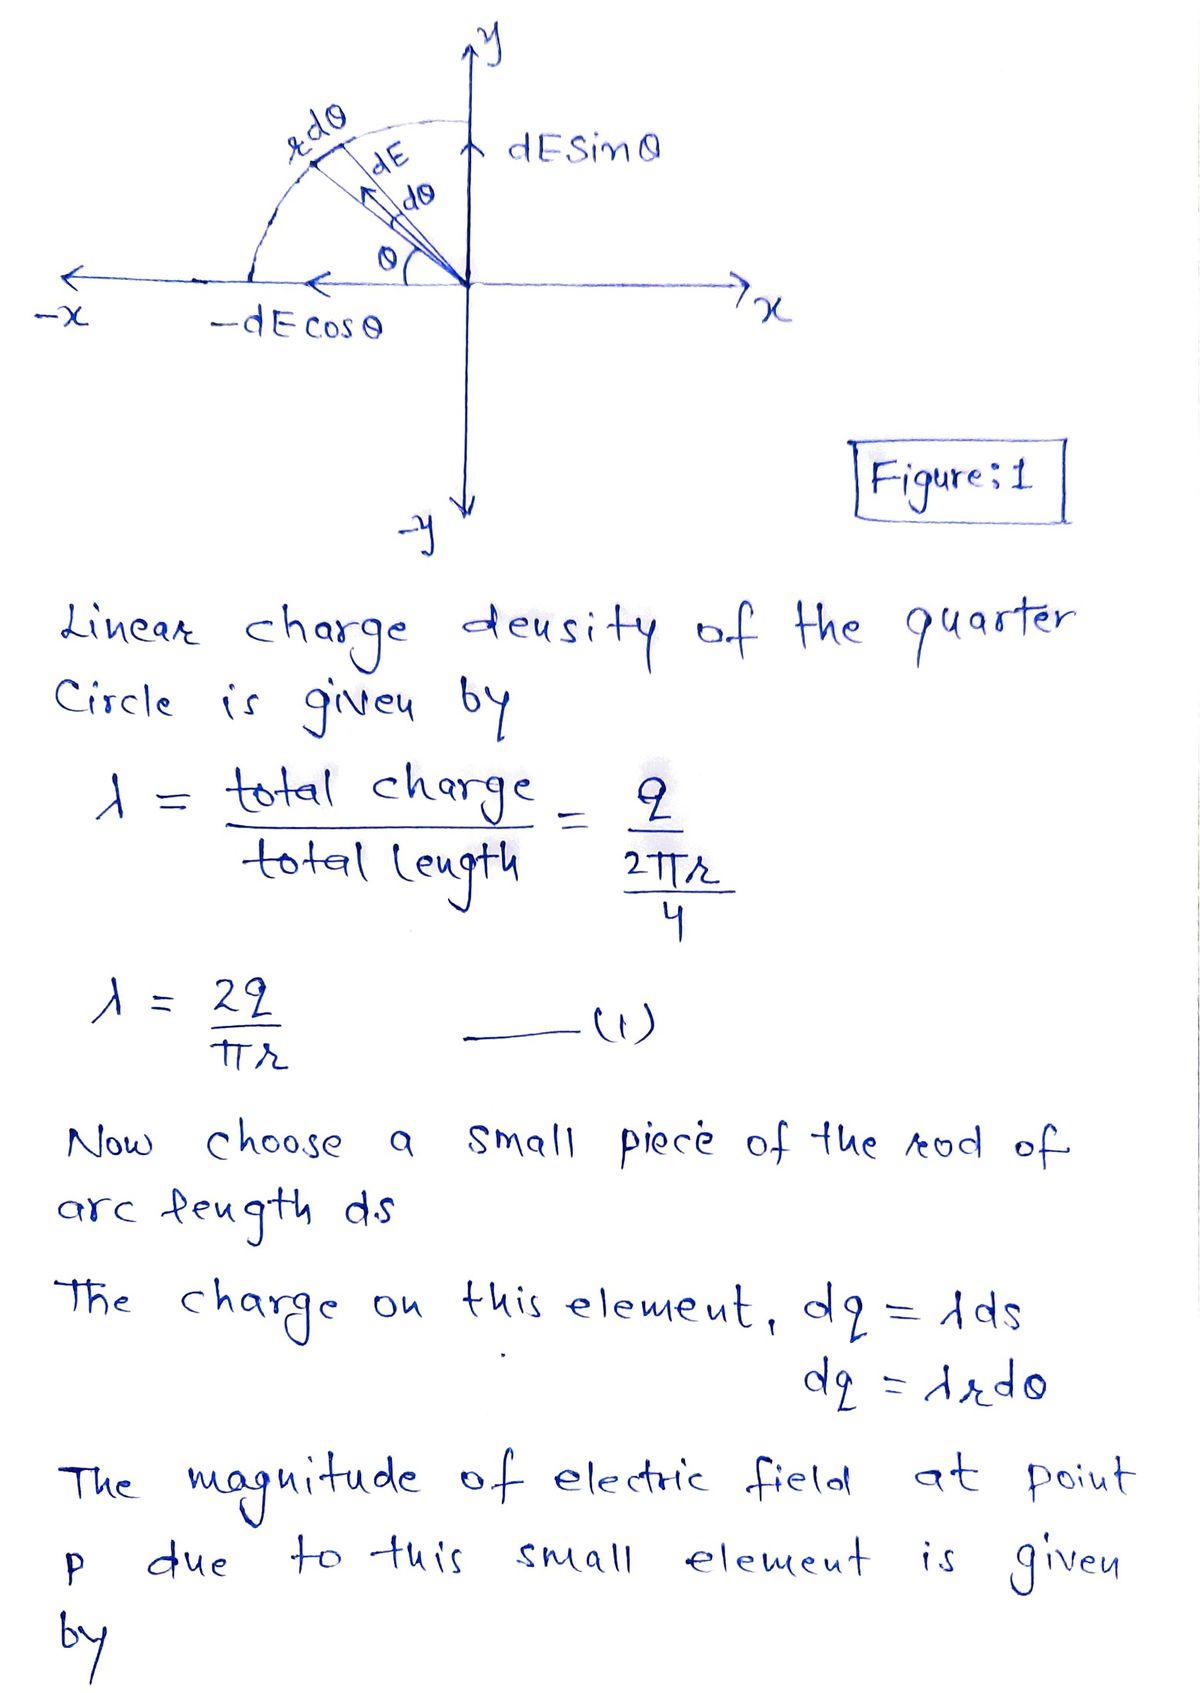 y
rdθ
dE
dE Sinθ
dθ
θ
-x
-dE cosθ
x
Figure: 1
-y
Linear charge density of the quarter
Circle is given by
λ = total charge / total length = q / (2πr / 4)
λ = 2q / πr —— (1)
Now choose a small piece of the rod of
arc length ds
The charge on this element, dq = λds
dq = λrdθ
The magnitude of electric field at point
P due to this small element is given
by